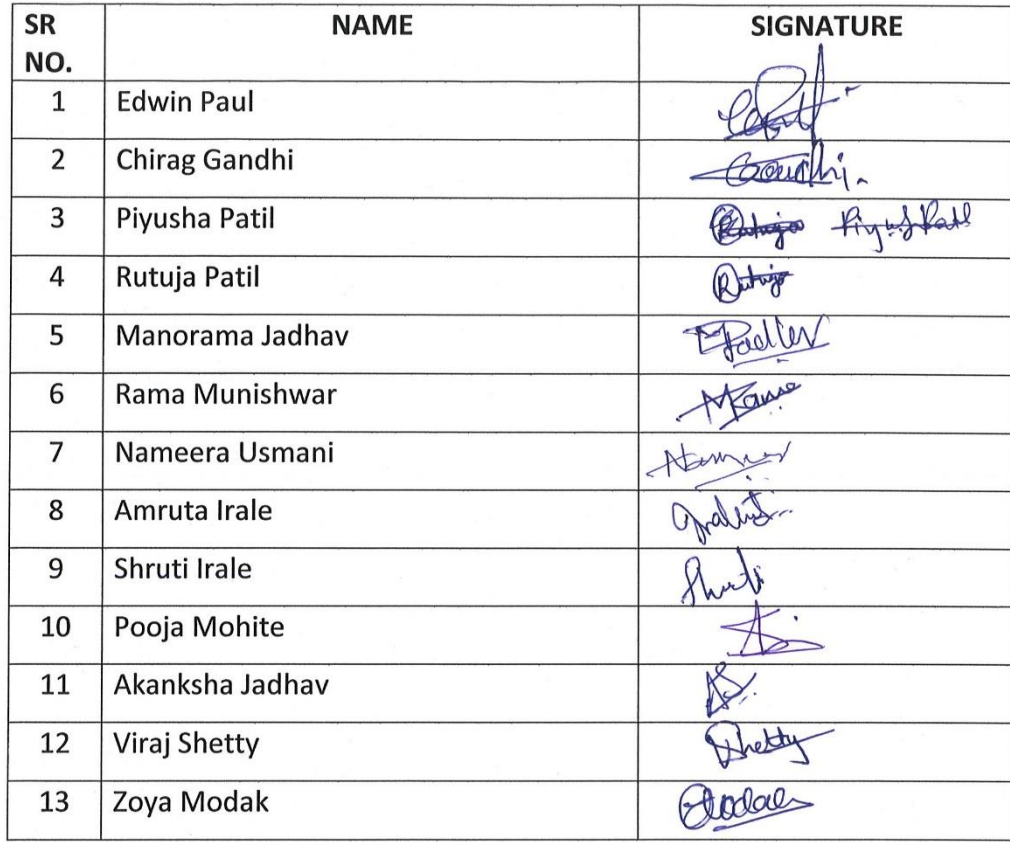 SR NO. NAME SIGNATURE
1 Edwin Paul
2 Chirag Gandhi Gandhi.
3 Piyusha Patil Rutuja Piyusha Patil
4 Rutuja Patil Rutuja
5 Manorama Jadhav
6 Rama Munishwar
7 Nameera Usmani
8 Amruta Irale
9 Shruti Irale Shruti
10 Pooja Mohite
11 Akanksha Jadhav
12 Viraj Shetty Shetty
13 Zoya Modak